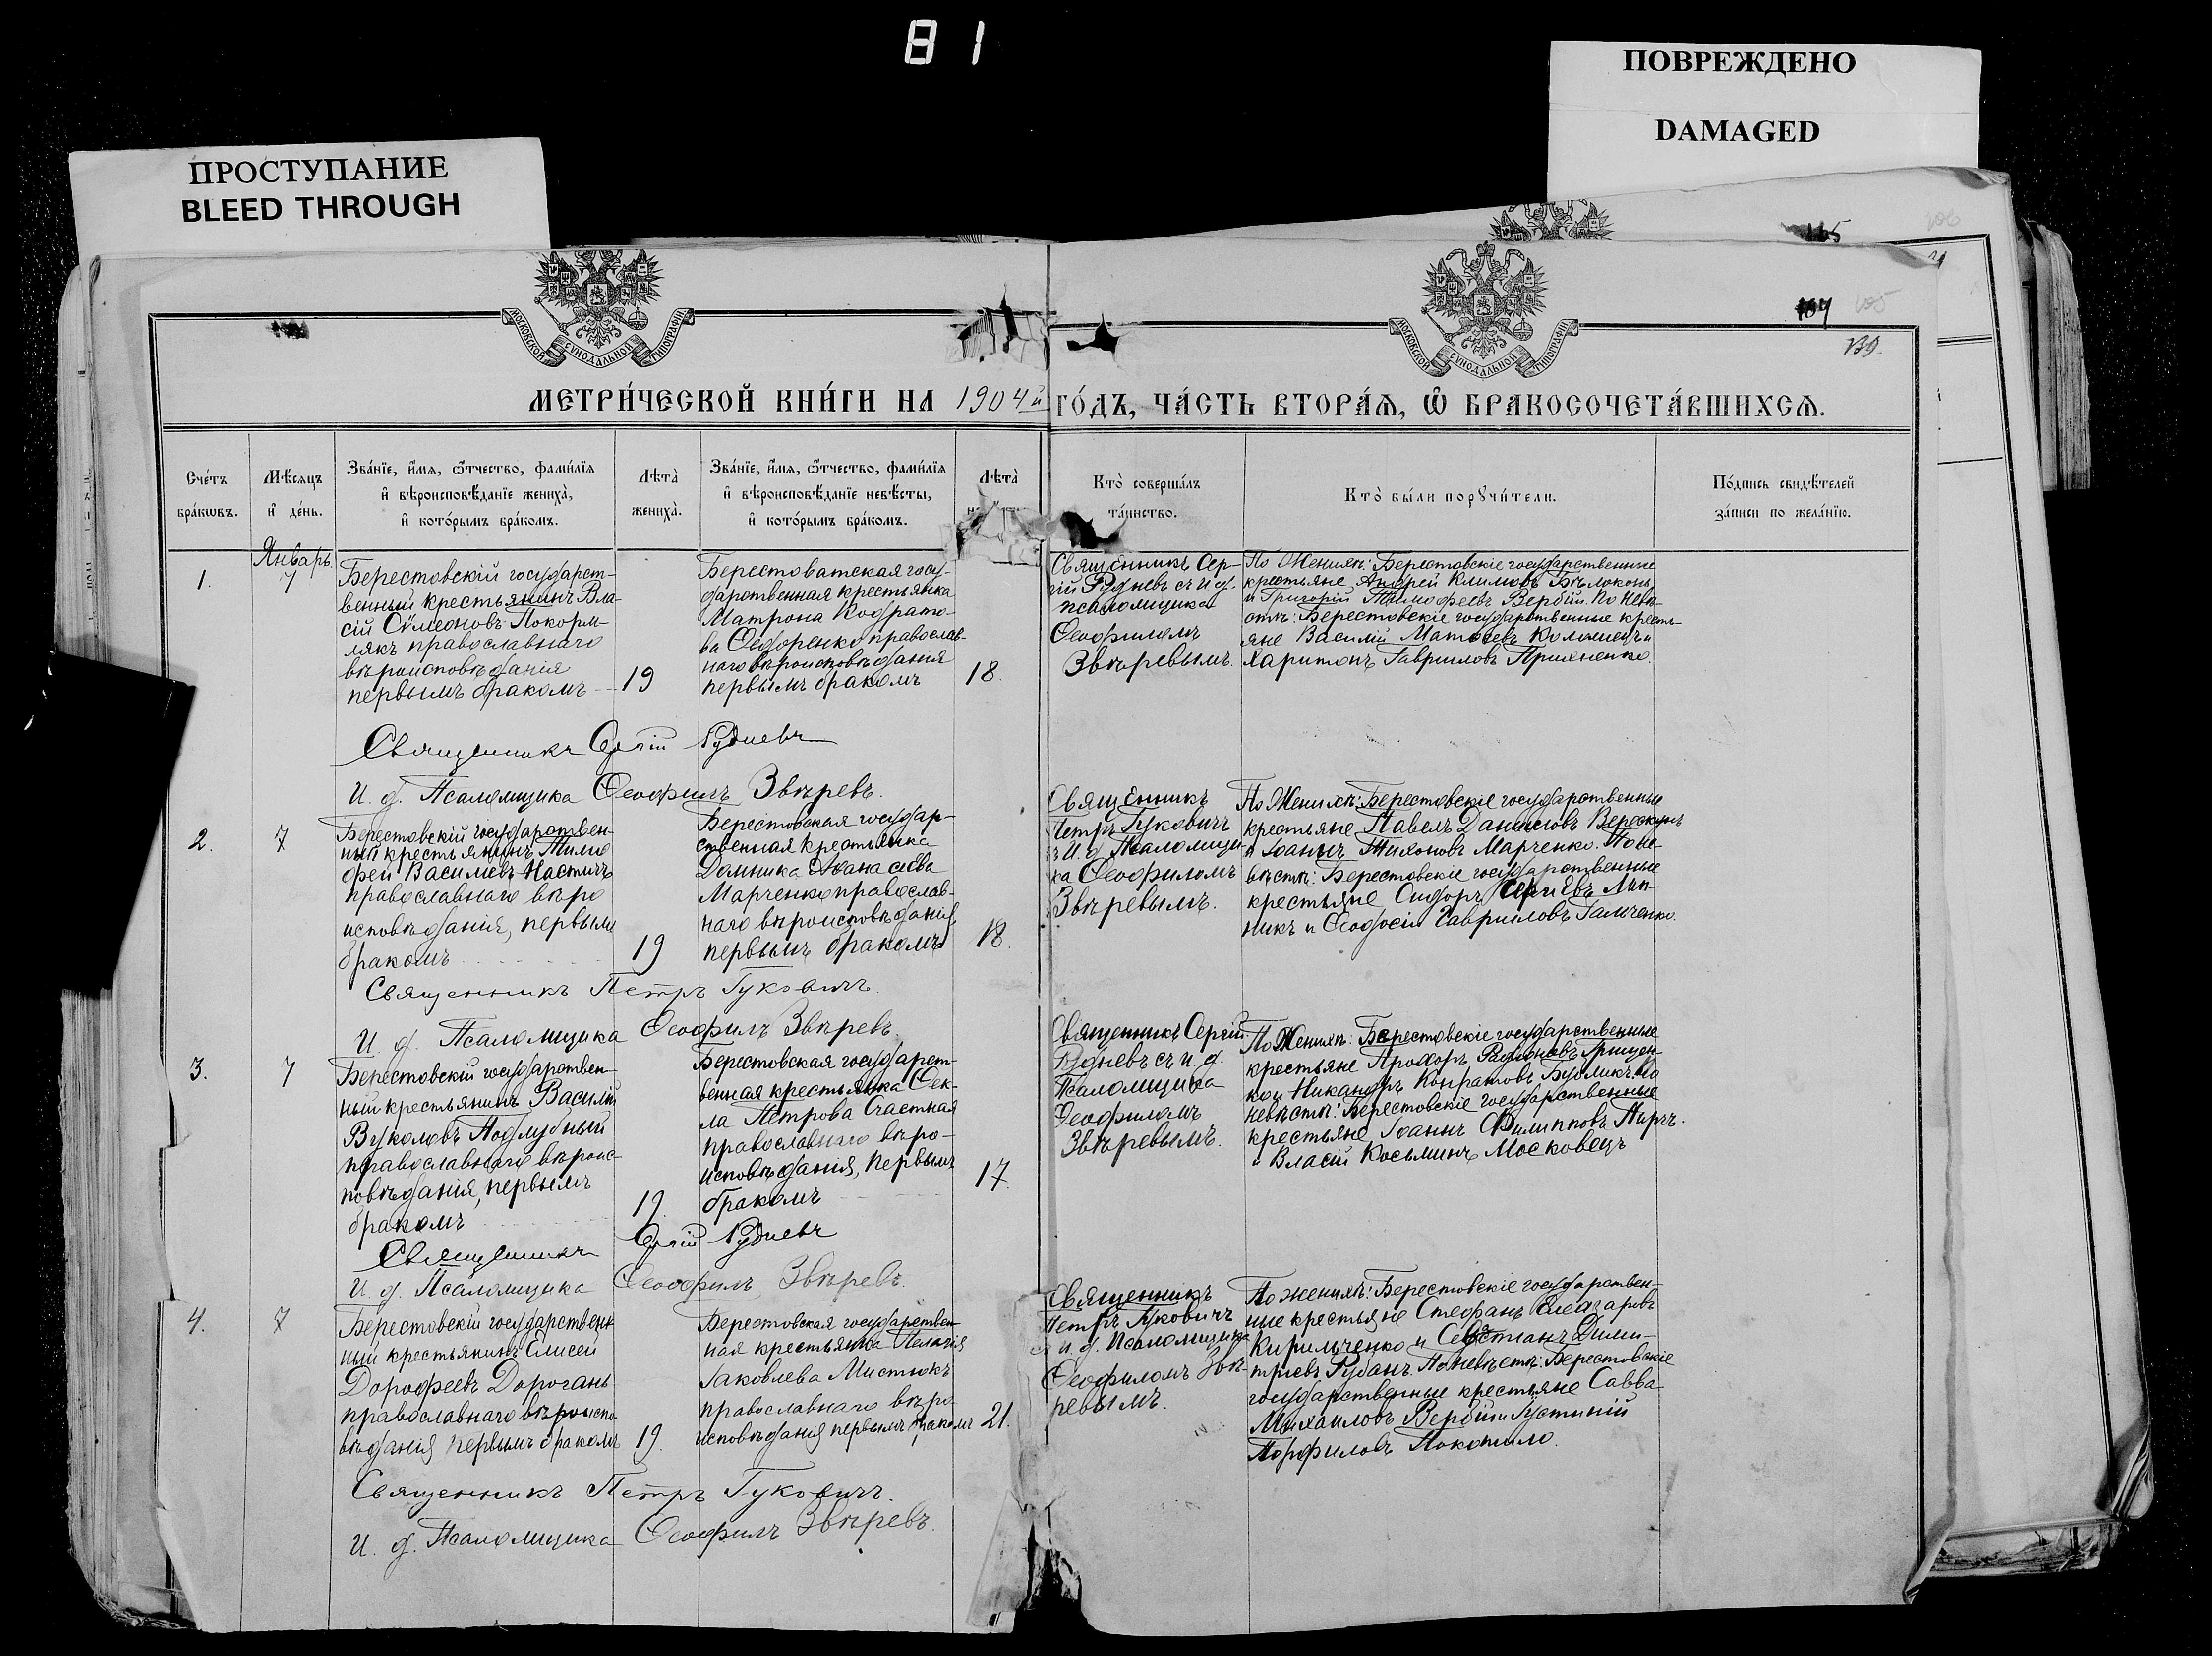 81
ПОВРЕЖДЕНО
DAMAGED
ПРОСТУПАНИЕ
BLEED THROUGH
МОСКОВСКОЙ СѴНОДАЛЬНОЙ ТИПОГРАФІИ
МОСКОВСКОЙ СѴНОДАЛЬНОЙ ТИПОГРАФІИ
105
139.
МЕТРИ́ЧЕСКОЙ КНИ́ГИ НА 1904й ГО́ДЪ, ЧА́СТЬ ВТОРА́Ѧ, Ѽ БРАКОСОЧЕТА́ВШИХСѦ.
Сче́тъ
бра́кѡвъ.
Мѣ́сяцъ
и҆ де́нь.
Зва́нїе, и҆́мя, ѻ҆́тчество, фами́лїя
и҆ вѣроисповѣ́данїе жениха̀,
и҆ кото́рымъ бра́комъ.
Лѣта̀
жениха̀.
Зва́нїе, и҆́мя, ѻ҆́тчество, фами́лїя
и҆ вѣроисповѣ́данїе невѣ́сты,
и҆ кото́рымъ бра́комъ.
Лѣта̀
Кто̀ соверша́лъ
та́инство.
Кто̀ бы́ли порꙋчи́тели.
По́дпись свидѣ́телей
за́писи по жела́нїю.
1.
Январь.
7
Берестовскій государст-
венный крестьянинъ Вла-
сій Сѵмеоновъ Покорм-
лякъ православнаго
вѣроисповѣданія
первымъ бракомъ
19
Берестоватская госу-
дарственная крестьянка
Матрона Кодрато-
ва Ѳедоренко православ-
наго вѣроисповѣданія
первымъ бракомъ
18.
Священникъ Сер-
гій Рудневъ съ и д.
псаломщика
Ѳеофиломъ
Звѣревымъ.
По Женихѣ: Берестовскіе государственные
крестьяне Андрей Климовъ Бѣлоконь
и Григорій Тимофеевъ Вербій. По невѣ-
стѣ: Берестовскіе государственные кресть-
яне Василій Матвеевъ Коломіецъ и
Харитонъ Гавриловъ Прихненко.
Священникъ Сергій Рудневъ
И. д. Псаломщика Ѳеофилъ Звѣревъ.
2.
7
Берестовскій государствен-
ный крестьянинъ Тимо
фей Василіевъ Настичъ
православнаго вѣро
исповѣданія, первымъ
бракомъ
19
Берестовская государ-
ственная крестьянка
Домника Аѳанасіева
Марченко православ-
наго вѣроисповѣданія
первымъ бракомъ
18.
Священникъ
Петръ Гуковичъ
съ И. д. Псаломщи-
ка Ѳеофиломъ
Звѣревымъ.
По Женихѣ: Берестовскіе государственные
крестьяне Павелъ Даниловъ Верескунъ
и Іоаннъ Тихоновъ Марченко. По не-
вѣстѣ: Берестовскіе государственные
крестьяне Сидоръ Сергіевъ Лин-
никъ и Ѳеодосій Гавриловъ Гальченко.
Священникъ Петръ Гуковичъ.
И. д. Псаломщика Ѳеофилъ Звѣревъ.
3.
7
Берестовскій государствен-
ный крестьянинъ Василій
Вуколовъ Поддубный
православнаго вѣроис-
повѣданія, первымъ
бракомъ
19.
Берестовская государст-
венная крестьянка Ѳек-
ла Петрова Счастная
православнаго вѣро-
исповѣданія, первымъ
бракомъ
17.
Священникъ Сергій
Рудневъ съ и. д.
Псаломщика
Ѳеофиломъ
Звѣревымъ.
По Женихѣ: Берестовскіе государственные
крестьяне Прохоръ Родіоновъ Грищен-
ко и Никандръ Кондратовъ Бубликъ. По
невѣстѣ: Берестовскіе государственные
крестьяне Іоаннъ Филипповъ Пирчъ.
и Власій Косьминъ Московецъ
Священникъ Сергій Рудневъ
И. д. Псаломщика Ѳеофилъ Звѣревъ.
4.
7
Берестовскій государствен-
ный крестьянинъ Елисей
Дорофеевъ Дорогань
православнаго вѣроиспо
вѣданія первымъ бракомъ
19.
Берестовская государствен-
ная крестьянка Пелагія
Іаковлева Мистюкъ
православнаго вѣро
исповѣданія первымъ бракомъ
21.
Священникъ
Петръ Гуковичъ
съ и. д. Псаломщика
Ѳеофиломъ Звѣ-
ревымъ.
По женихѣ: Берестовскіе государствен-
ные крестьяне Стефанъ Елеазаровъ
Кирильченко и Севастіанъ Дими-
тріевъ Рубанъ. По невѣстѣ: Берестовскіе
государственные крестьяне Савва
Михаиловъ Вербій и Іустиній
Порфиловъ Покотило.
Священникъ Петръ Гуковичъ.
И. д. Псаломщика Ѳеофилъ Звѣревъ.